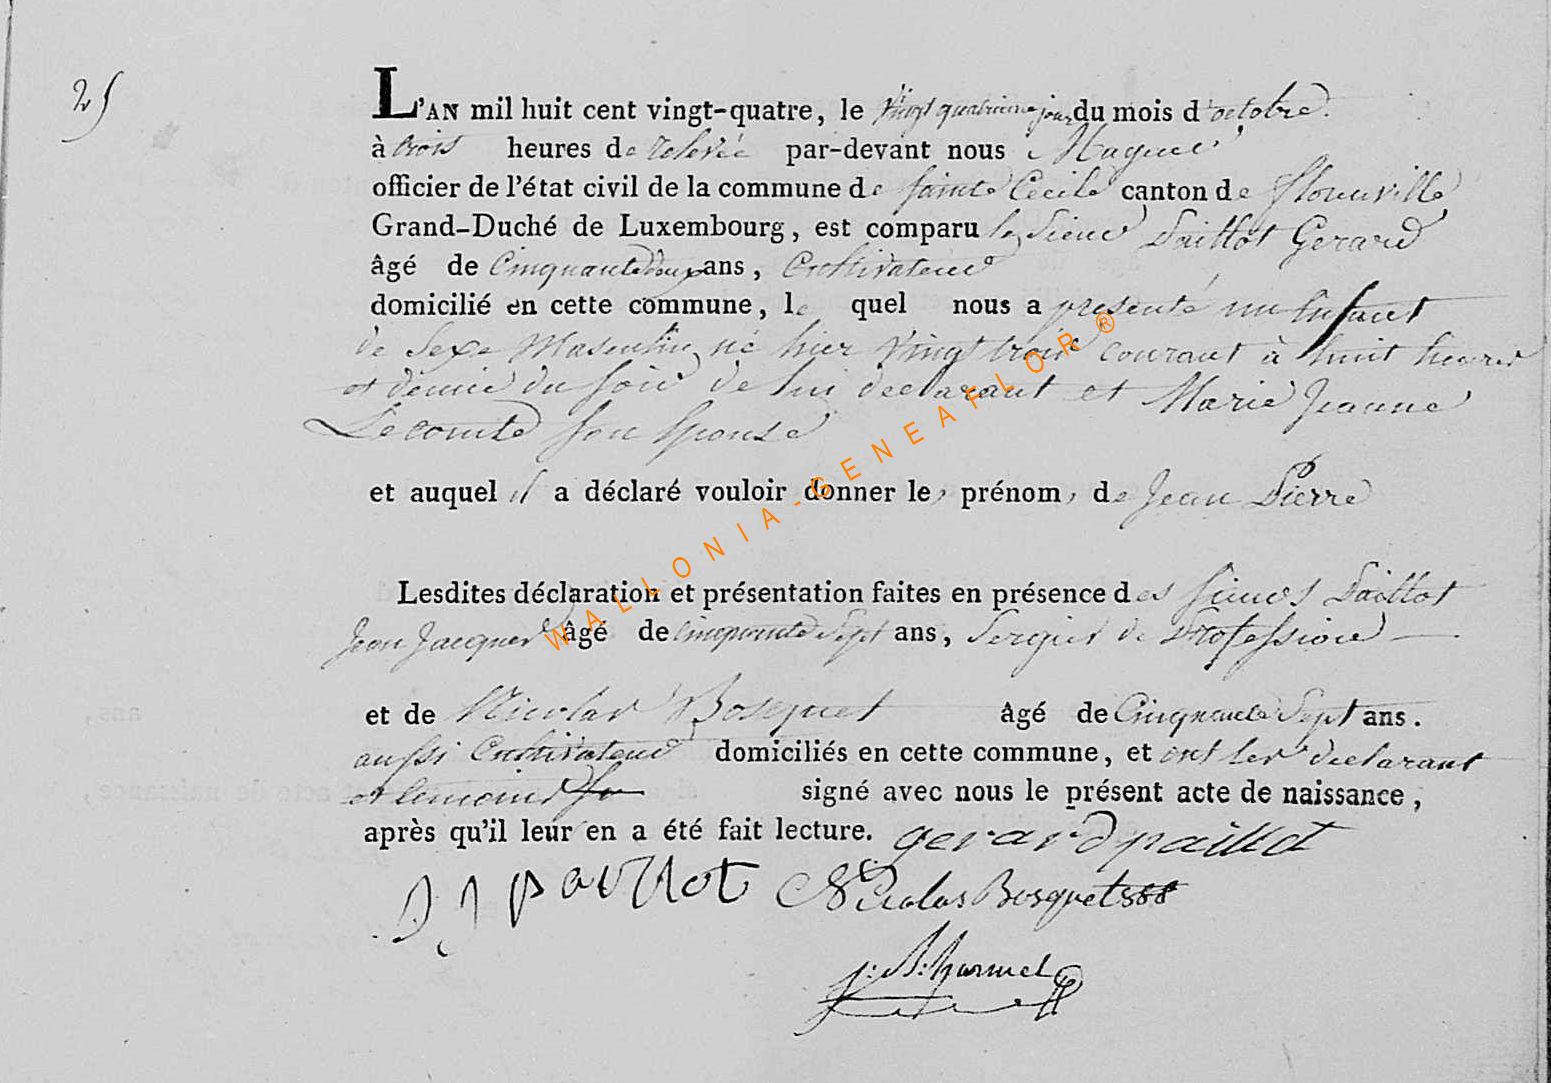 25
L'AN mil huit cent vingt-quatre, le Vingt quatrieme jour du mois d'octobre.
à trois heures de relevée par-devant nous
officier de l'état civil de la commune de Sainte Cecile canton de florenville
Grand-Duché de Luxembourg, est comparu le Sieur Paillot Gerard
âgé de Cinquante deux ans, Cultivateur
domicilié en cette commune, le quel nous a presenté un Enfant
de Sexe Masculin né hier Vingt trois courant à huit heures
et demie du soir de lui declarant et Marie Jeanne
Lecomte son Epouse
et auquel il a déclaré vouloir donner les prénoms de Jean Pierre
Lesdites déclaration et présentation faites en présence des sieurs Paillot
Jean Jacques âgé de cinquante Sept ans, Sergier de Profession
et de Nicolas Bosquet âgé de Cinquante Sept ans.
aussi Cultivateur domiciliés en cette commune, et ont les declarant
et temoins signé avec nous le présent acte de naissance,
après qu'il leur en a été fait lecture. gerard paillot
J J paillot Nicolas Bosquet
J: B:
WALLONIA-GENEAFLOR®